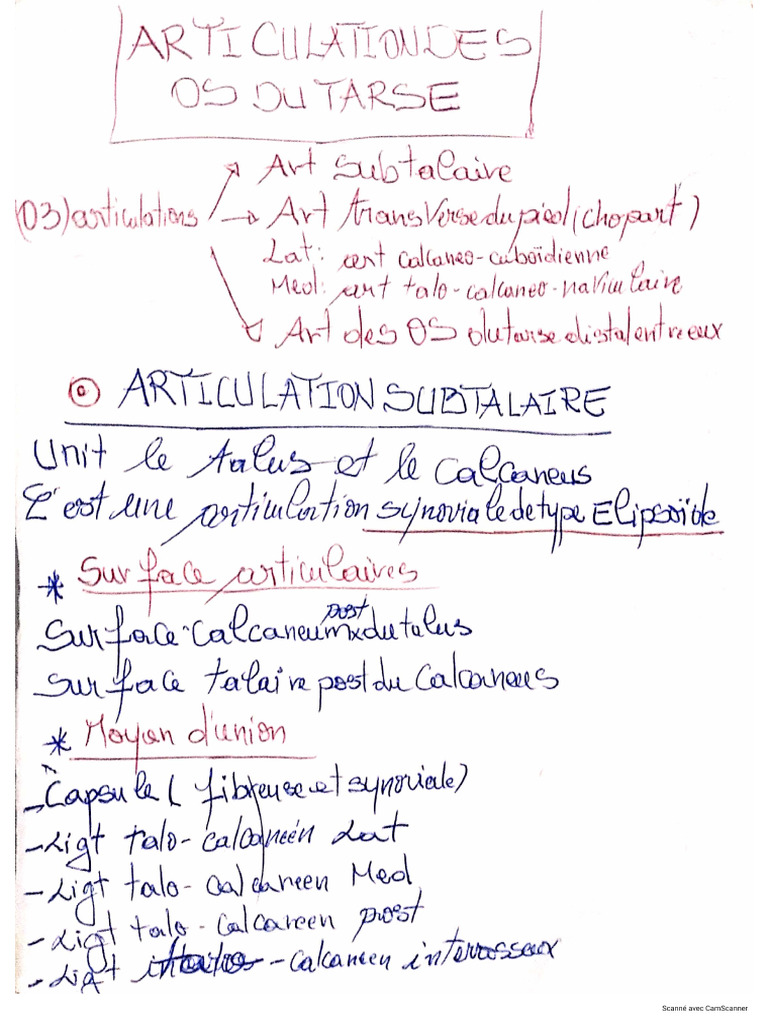 ARTICULATION DES
OS DU TARSE
Art Subtalaire
(03) articulations → Art transverse du pied (chopart)
Lat: art calcaneo-cuboïdienne
Med: art talo-calcaneo-naviculaire
Art des OS du tarse distal entre eux
ARTICULATION SUBTALAIRE
Unit le talus et le calcaneus
C'est une articulation synoviale de type Elipsoïde
* Surface articulaires
post
Surface calcaneumx du talus
Surface talaire post du Calcaneus
* Moyen d'union
- Capsule (fibreuse et synoviale)
- Ligt talo-calcaneén Lat
- Ligt talo-calcaneen Med
- Ligt talo-calcaneen post
- Ligt -calcaneen interosseux
Scanné avec CamScanner